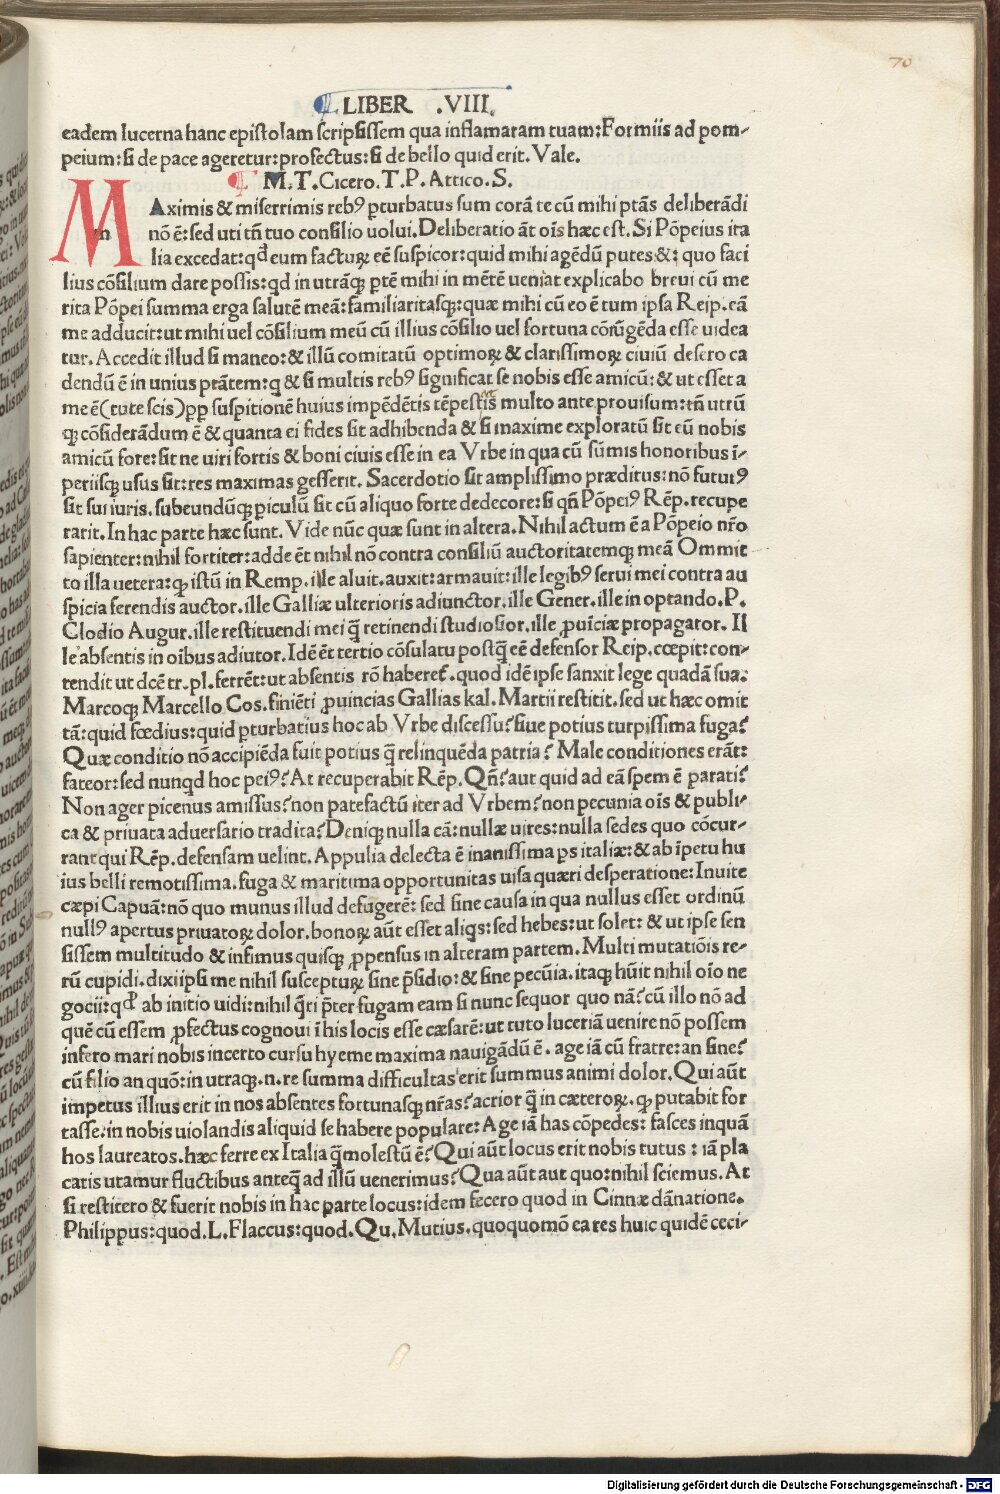 70
LIBER .VIII.
eadem lucerna hanc epistolam scripsissem qua inflamaram tuam: Formiis ad pom-
peium: si de pace ageretur: profectus: si de bello quid erit. Vale.
M. T. Cicero. T. P. Attico. S.
MAximis & miserrimis rebꝰ ꝑturbatus sum corā te cū mihi ptās deliberādi
nō ē: sed uti tn̄ tuo consilio uolui. Deliberatio āt oīs hæc est. Si Pōpeius ita
lia excedat: qd̓ eum facturꝝ eē suspicor: quid mihi agēdū putes &: quo faci
lius cōsilium dare possis: qd in utrāqꝫ ꝑtē mihi in mētē ueniat explicabo breui cū me
rita Pōpei summa erga salutē meā: familiaritasqꝫ: quæ mihi cū eo ē tum ipsa Reip. cā
me adducit: ut mihi uel cōsilium meū cū illius cōsilio uel fortuna cōiūgēda esse uidea
tur. Accedit illud si maneo: & illū comitatū optimoꝝ & clarissimoꝝ ciuiū desero ca
dendū ē in unius ptātem: q & si multis rebꝰ significat se nobis esse amicū: & ut esset a
me ē (tute scis) ꝓꝑ suspitionē huius impēdētis tēpestis multo ante prouisum: tn̄ utrū
qꝫ cōsiderādum ē & quanta ei fides sit adhibenda & si maxime exploratū sit eū nobis
amicū fore: sit ne uiri fortis & boni ciuis esse in ea Vrbe in qua cū sūmis honoribus ī-
periisqꝫ usus sit: res maximas gesserit. Sacerdotio sit amplissimo præditus: nō futurꝰ
sit sui iuris. subeundūqꝫ ꝑiculū sit cū aliquo forte dedecore: si qn̄ Pōpeiꝰ Rēp. recupe
rarit. In hac parte hæc sunt. Vide nūc quæ sunt in altera. Nihil actum ē a Pōpeio nr̄o
sapienter: nihil fortiter: adde ēt nihil nō contra consiliū auctoritatemqꝫ meā Ommit
to illa uetera: qꝫ istū in Remp. ille aluit. auxit: armauit: ille legibꝰ serui mei contra au
spicia ferendis auctor. ille Galliæ ulterioris adiunctor. ille Gener. ille in optando. P.
Clodio Augur. ille restituendi mei q̄ retinendi studiosior. ille ꝓuīciæ propagator. Il
le absentis in oībus adiutor. Idē ēt tertio cōsulatu postq̄ eē defensor Reip. cœpit: con-
tendit ut dcē tr. pl. ferrēt: ut absentis rō haberet̉. quod idē ipse sanxit lege quadā sua.
Marcoqꝫ Marcello Cos. finiēti ꝓuincias Gallias kal. Martii restitit. sed ut hæc omit
tā: quid fœdius: quid ꝑturbatius hoc ab Vrbe discessu? siue potius turpissima fuga?
Quæ conditio nō accipiēda fuit potius q̄ relinquēda patria? Male conditiones erāt:
fateor: sed nunqd hoc peiꝰ? At recuperabit Rēp. Qn̄? aut quid ad eā spem ē parati?
Non ager picenus amissus? non patefactū iter ad Vrbem? non pecunia oīs & publi-
ca & priuata aduersario tradita? Deniqꝫ nulla cā: nullæ uires: nulla sedes quo cōcur-
rant qui Rēp. defensam uelint. Appulia delecta ē inanissima ps italiæ: & ab īpetu hu
ius belli remotissima. fuga & maritima opportunitas uisa quæri desperatione: Inuite
cæpi Capuā: nō quo munus illud defugerē: sed sine causa in qua nullus esset ordinū
nullꝰ apertus priuatoꝝ dolor. bonoꝝ aūt esset aliqs: sed hebes: ut solet: & ut ipse sen
sissem multitudo & infimus quisqꝫ ꝓpensus in alteram partem. Multi mutatiōis re-
rū cupidi. dixi ipsi me nihil suscepturꝝ sine p̄sidio: & sine pecūia. itaqꝫ hūit nihil oīo ne
gocii: qd̓ ab initio uidi: nihil q̄ri p̄ter fugam eam si nunc sequor quo nā? cū illo nō ad
quē cū essem ꝓfectus cognoui ī his locis esse cæsarē: ut tuto luceriā uenire nō possem
infero mari nobis incerto cursu hyeme maxima nauigādū ē. age iā cū fratre: an sine?
cū filio an quō: in utraqꝫ. n. re summa difficultas erit summus animi dolor. Qui aūt
impetus illius erit in nos absentes fortunasqꝫ nr̄as? acrior q̄ in cæteroꝝ. qꝫ putabit for
tasse: in nobis uiolandis aliquid se habere populare: Age iā has cōpedes: fasces inquā
hos laureatos. hæc ferre ex Italia q̄ molestū ē? Qui aūt locus erit nobis tutus: iā pla
catis utamur fluctibus anteq̄ ad illū uenerimus? Qua aūt aut quo: nihil sciemus. At
si restitero & fuerit nobis in hac parte locus: idem fecero quod in Cinnæ dānatione.
Philippus: quod. L. Flaccus: quod. Qu. Mutius. quoquomō ea res huic quidē ceci-
Digitalisierung gefördert durch die Deutsche Forschungsgemeinschaft - DFG